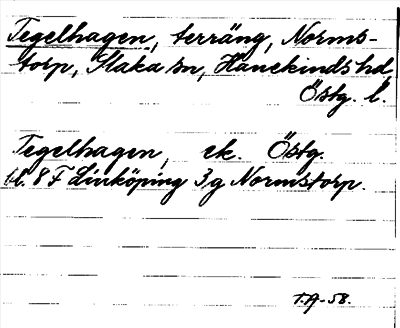 Tegelhagen, terräng, Norms-
torp, Slaka sn, Hanekinds hd,
Östg. l.
Tegelhagen, ek. Östg.
bl. 8 F Linköping 3g Normstorp.
T.A-58.